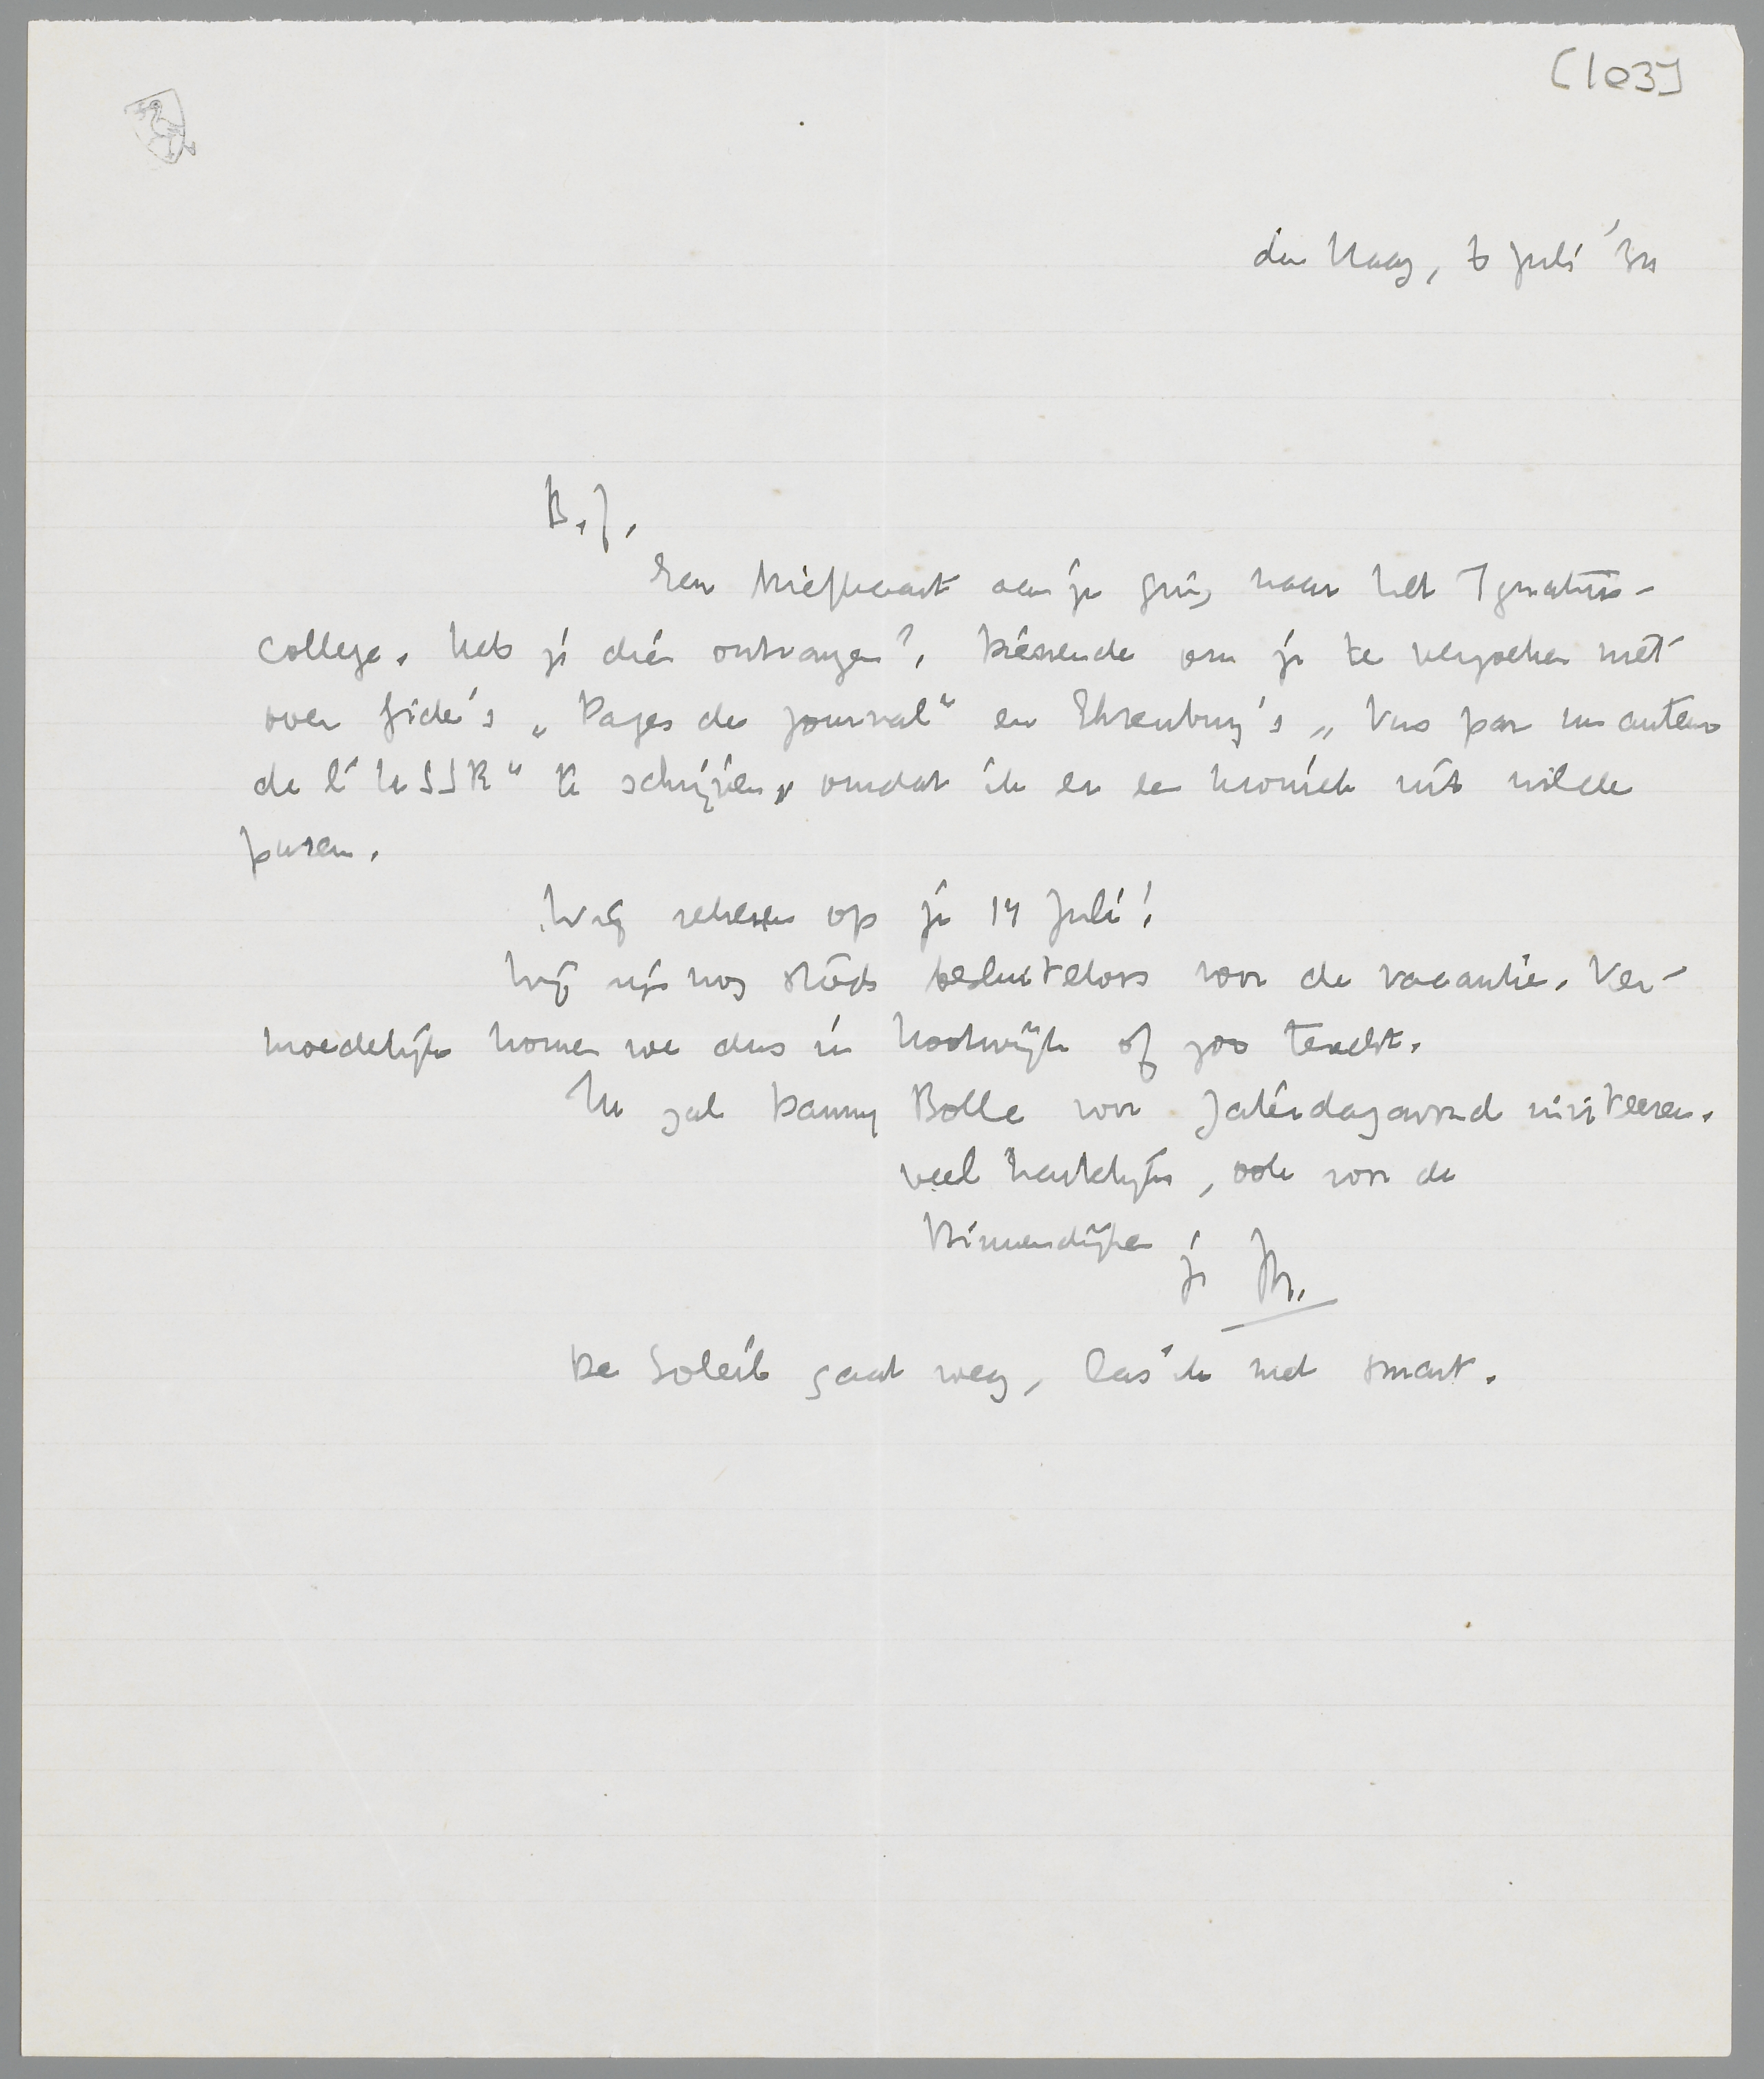 [103]
den Haag, 6 Juli '34
B.J.
Een briefkaart aan je ging naar het Ignatius-
college. Heb je dié ontvangen?, dienende om je te verzoeken niet
over Gide's „Pages de journal" en Ehrenburg's „Vus par un auteur
de l'USSR" te schrijven, omdat ik er een kroniek uit wilde
puren.
Wij rekenen op je 14 Juli!
Wij zijn nog steeds besluiteloos voor de vacantie. Ver-
moedelijk komen we dus in Noordwijk of zoo terecht.
Ik zal Danny Bolle voor Zaterdagavond inviteeren.
veel hartelijks, ook voor de
Binnendijken
je M.
De Soleil gaat weg, las ik met smart.